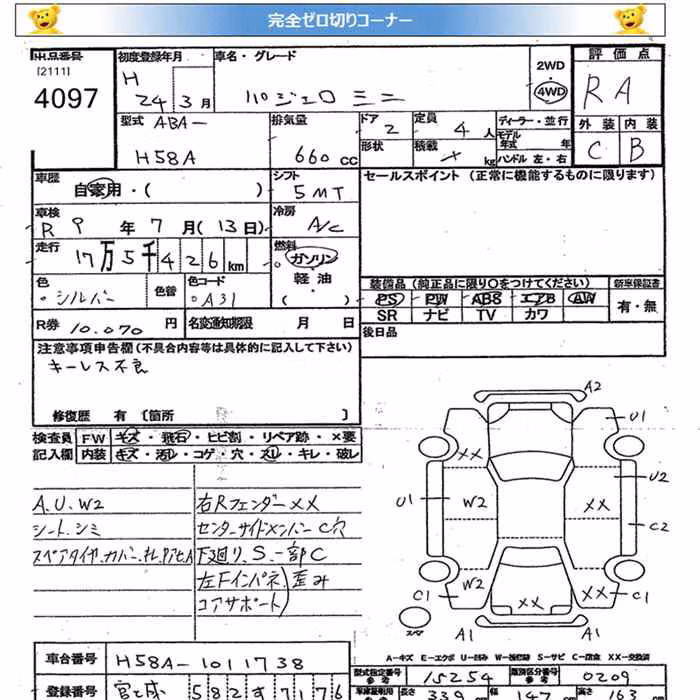 完全ゼロ切りコーナー
出品番号 初度登録年月 車名・グレード 2WD 4WD 評価点
[2111]
4097
H 24 3月 パジェロミニ RA
型式 ABA- H58A 排気量 660cc ドア 2 定員 4人 ディーラー・並行 外装 内装
形状 積載 kg モデル年式 年 C B
ハンドル 左・右
車歴 自家用・( ) シフト 5MT セールスポイント (正常に機能するものに限ります)
車検 R9年7月(13日) 冷房 A/C
走行 17万5千426km 燃料 ガソリン
軽油
色 シルバー 色替 色コード A31 ( ) 装備品 (純正品に限り○をつけてください) 新車保証書
PS PW ABS エアB AW 有・無
SR ナビ TV カワ
R券 10.070円 名変通知期限 月 日 後日品
注意事項申告欄(不具合内容等は具体的に記入して下さい)
キーレス不良
修復歴 有〔箇所 〕
検査員 FW キズ・飛石・ヒビ割・リペア跡・×要
記入欄 内装 キズ・汚レ・コゲ・穴・スレ・キレ・破レ
A.U.W2 右Rフェンダー××
シート.シミ センターサイドメンバーC穴
スペアタイヤ.カバー 下廻り.S.一部C
左Fインパネ 歪み
コアサポート
A2
U1
××
U2
U1 W2 ×× C2
C1 W2 ×× ×× C1
スペア A1 A1
A-キズ E-エクボ U-凹み W-補修跡 S-サビ C-腐食 XX-交換済
車台番号 H58A-1011738 型式指定番号 参考 15254 類別区分番号 参考 0209
登録番号 宮城 582す7176 長さ 339 幅 147 高さ 163